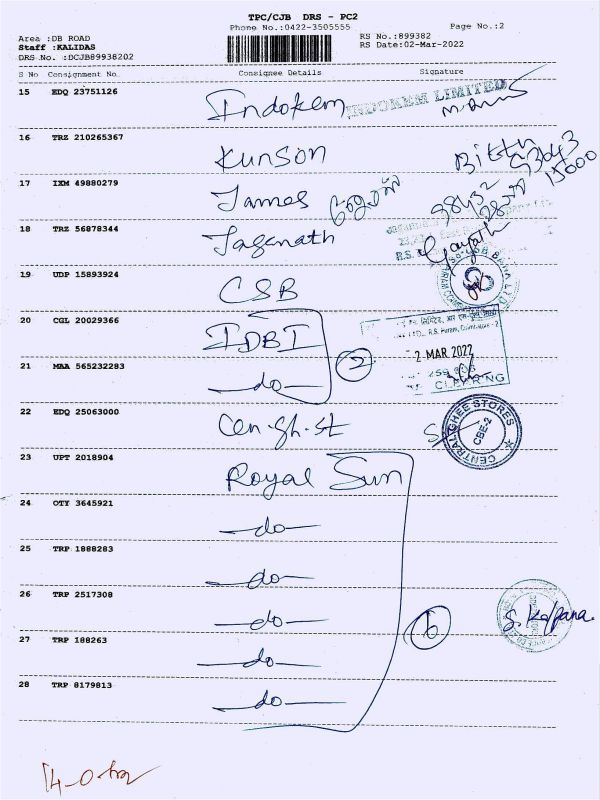 TPC/CJB DRS - PC2
Phone No.:0422-3505555
Page No.:2
Area :DB ROAD
RS No.:899382
Staff :KALIDAS
RS Date:02-Mar-2022
DRS No. :DCJB89938202
S No Consignment No Consignee Details Signature
15 EDQ 23751126 Indokem INDOKEM LIMITED
16 TRZ 210265367 Kunson
17 IXM 49880279 James
18 TRZ 56878344 Jagenath
19 UDP 15893924 CSB
20 CGL 20029366 IDBI
R.S. Puram, Coimbatore - 2
2 MAR 2022
21 MAA 565232283 -do- 2
CLEARING
22 EDQ 25063000 Cen.gh.st
CENTRAL GHEE STORES
CBE-2
23 UPT 2018904 Royal Sun
24 OTY 3645921 -do-
25 TRP 1888283 -do-
26 TRP 2517308 -do- 6 S. Kalpana.
27 TRP 188263 -do-
28 TRP 8179813 -do-